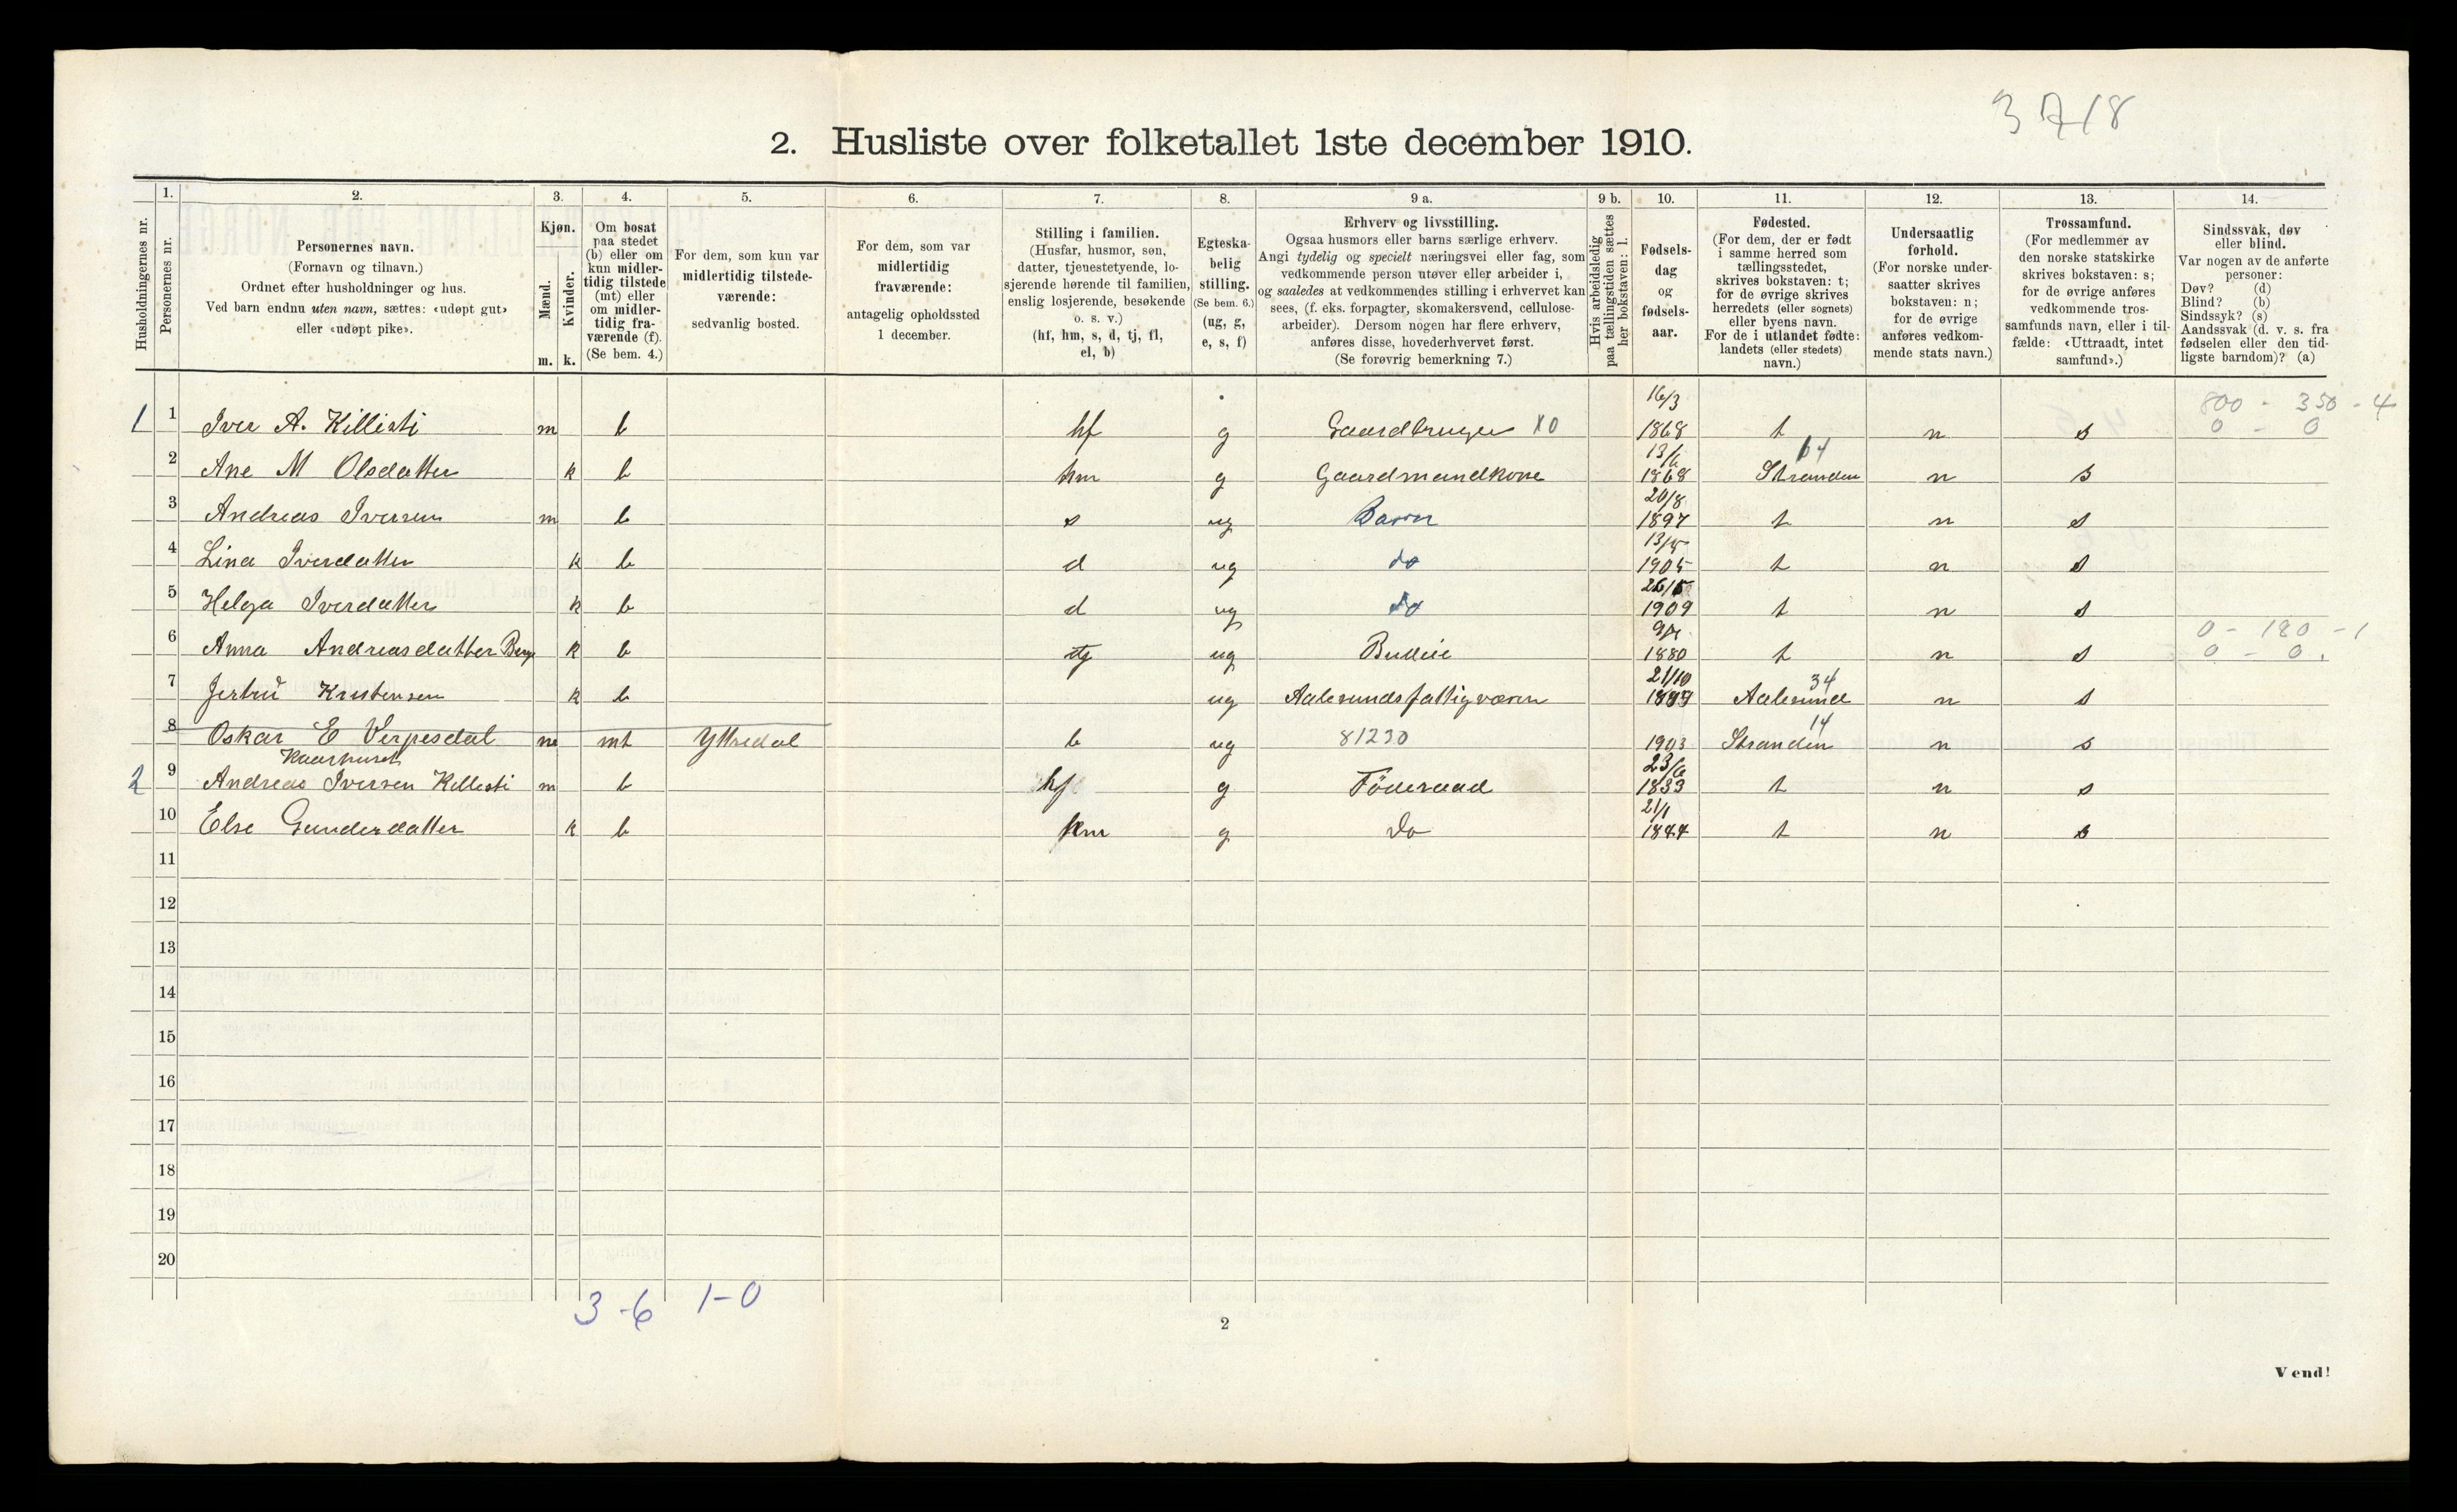 3718
2. Husliste over folketallet 1ste december 1910.
Husholdningernes nr.
1. Personernes nr.
2. Personernes navn.
(Fornavn og tilnavn.)
Ordnet efter husholdninger og hus.
Ved barn endnu uten navn, sættes: «udøpt gut»
eller «udøpt pike».
3. Kjøn.
Mænd. Kvinder.
m. k.
4. Om bosat
paa stedet
(b) eller om
kun midler-
tidig tilstede
(mt) eller
om midler-
tidig fra-
værende (f).
(Se bem. 4.)
5. For dem, som kun var
midlertidig tilstede-
værende:
sedvanlig bosted.
6. For dem, som var
midlertidig
fraværende:
antagelig opholdssted
1 december.
7. Stilling i familien.
(Husfar, husmor, søn,
datter, tjenestetyende, lo-
sjerende hørende til familien,
enslig losjerende, besøkende
o. s. v.)
(hf, hm, s, d, tj, fl,
el, b)
8. Egteska-
belig
stilling.
(Se bem. 6.)
(ug, g,
e, s, f)
9 a. Erhverv og livsstilling.
Ogsaa husmors eller barns særlige erhverv.
Angi tydelig og specielt næringsvei eller fag, som
vedkommende person utøver eller arbeider i,
og saaledes at vedkommendes stilling i erhvervet kan
sees, (f. eks. forpagter, skomakersvend, cellulose-
arbeider). Dersom nogen har flere erhverv,
anføres disse, hovederhvervet først.
(Se forøvrig bemerkning 7.)
9 b. Hvis arbeidsledig
paa tællingstiden sættes
her bokstaven: l.
10. Fødsels-
dag
og
fødsels-
aar.
11. Fødested.
(For dem, der er født
i samme herred som
tællingsstedet,
skrives bokstaven: t;
for de øvrige skrives
herredets (eller sognets)
eller byens navn.
For de i utlandet fødte:
landets (eller stedets)
navn.)
12. Undersaatlig
forhold.
(For norske under-
saatter skrives
bokstaven: n;
for de øvrige
anføres vedkom-
mende stats navn.)
13. Trossamfund.
(For medlemmer av
den norske statskirke
skrives bokstaven: s;
for de øvrige anføres
vedkommende tros-
samfunds navn, eller i til-
fælde: «Uttraadt, intet
samfund».)
14. Sindssvak, døv
eller blind.
Var nogen av de anførte
personer:
Døv? (d)
Blind? (b)
Sindssyk? (s)
Aandssvak (d. v. s. fra
fødselen eller den tid-
ligste barndom)? (a)
16/3 800 - 350 - 4
1 1 Iver A. Killisti m b hf g Gaardbruger X0 1868 t n s 0 - 0
2 Ane M Olsdatter k b hm g Gaardmandkone 13/6 1868 Stranden 14 n s
3 Andreas Iversen m b s ug Barn 20/8 1897 t n s
4 Lina Iversdatter k b d ug do 1905 t n s
5 Helga Iverdatter k b d ug do 1909 t n s
0 - 180 - 1
6 Anna Andreasdatter Berge k b tj ug Budeie 1880 t n s 0 - 0
7 Jertrü Kristensen k b ug Aalesunds fattigvæsen 21/10 Aalesund 34 n s
8 Oskar E Verpesdal m mt Yttredal b ug 81230 1903 Stranden 14 n s
Kaarhuset
2 9 Andreas Iversen Killisti m b hf g Föderaad 23/6 1833 t n s
10 Else Gundersdatter k b hm g Do 21/1 1844 t n s
11
12
13
14
15
16
17
18
19
20
3-6 1-0
2
Vend!